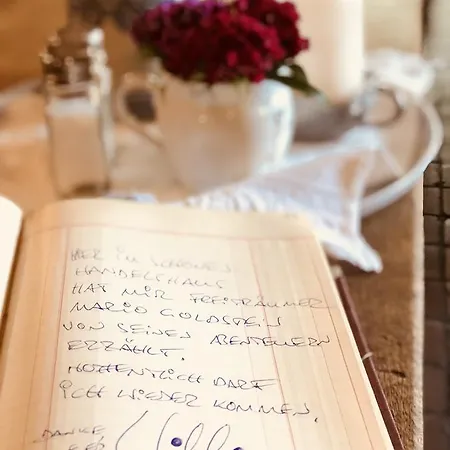 HIER IM SCHÖNEN
HANDELSHAUS
HAT MIR FREITRÄUMER
MARIO GOLDSTEIN
VON SEINEN ABENTEUERN
ERZÄHLT.
HOFFENTLICH DARF
ICH WIEDER KOMMEN.
DANKE